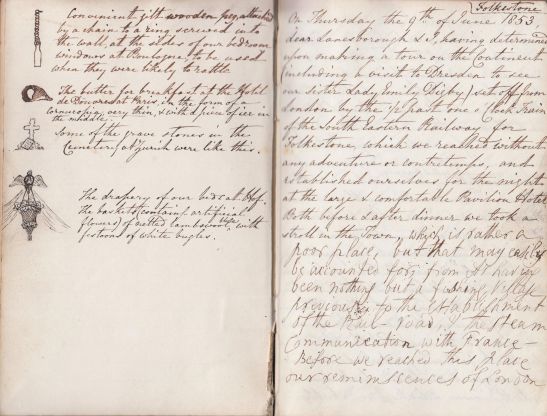 Convenient gilt wooden peg, attached
by a chain to a ring screwed into
the wall, at the sides of our bedroom
windows at Boulogne, to be used
when they were likely to rattle
The butter for breakfast at the Hotel
de Douvres at Paris, in the form of a
cornucopia, very thin, & with a piece of ice in
the middle.
Some of the grave stones in the
Cemetery at Zurich were like this.
The drapery of our beds at Hof.
The baskets contain artificial
flowers, of netted lambswool, with
festoons of white bugles.
Folkestone
On Thursday the 9th of June 1853,
dear Lanesborough & I, having determined
upon making a tour on the Continent
(including a visit to Dresden to see
our sister Lady Emily Digby) set off from
London by the ½ past one o'Clock Train
of the South Eastern Railway for
Folkestone, which we reached without
any adventure or contretemps, and
established ourselves for the night
at the large & comfortable Pavilion Hotel
Both before & after dinner we took a
stroll in the Town, which is rather a
poor place, but that may easily
be accounted for, from its having
been nothing but a fishing Village
previously to the establishment
of the Rail-road, & the steam
Communication with France—
Before we reached this place
our reminiscences of London